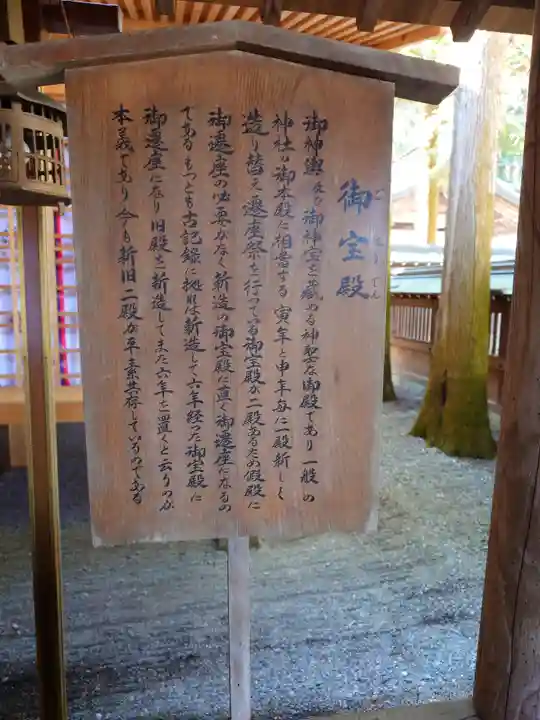 御宝殿
ごほうでん
御神輿及び御神宝を蔵める神聖な御殿であり一般の
神社の御本殿に相当する 寅年と申年毎に一殿新しく
造り替え遷座祭を行っている御宝殿が二殿あるため假殿に
御遷座の必要がなく新造の御宝殿に直く御遷座になるの
である もつとも古記録に拠れば新造して六年経つた御宝殿に
御遷座になり旧殿を新造してまた六年を置くと云うのが
本義であり今も新旧二殿が平素共存しているのである